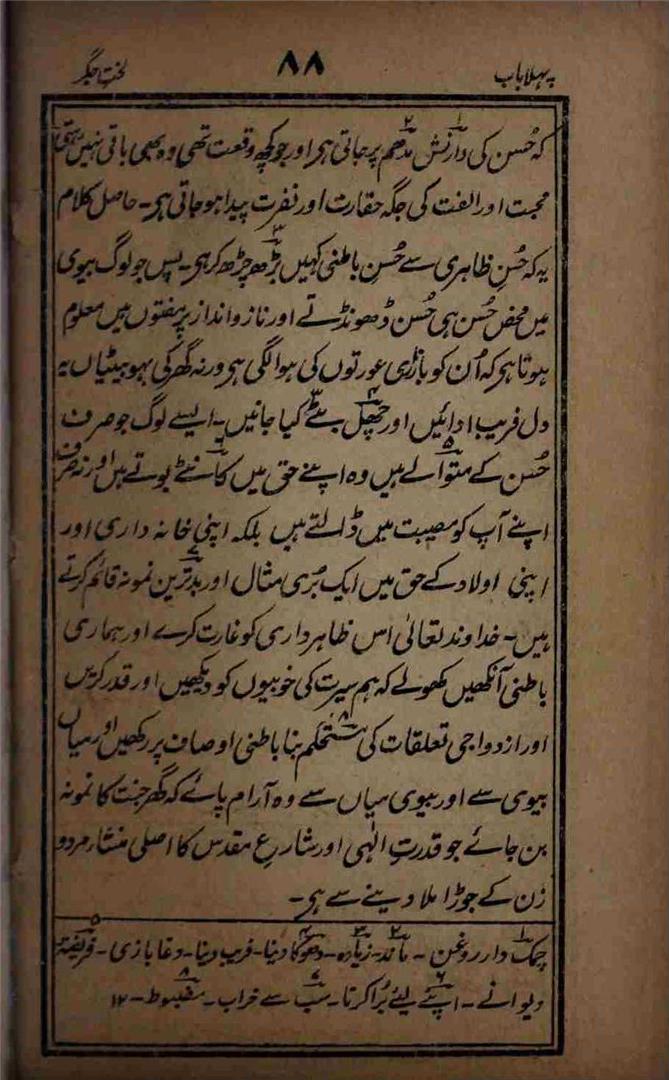 پہلا باب ۸۸ لخت جگر
کہ حُسن کی وارنش مدھم پر جاتی ہی اور جو کچھ وقعت تھی وہ بھی باقی نہیں رہتی
محبت اور الفت کی جگہ حقارت اور نفرت پیدا ہو جاتی ہی۔ حاصل کلام
یہ کہ حُسنِ ظاہری سے حُسنِ باطنی کہیں بڑھ چڑھ کر ہی۔ پس جو لوگ بیوی
میں محض حُسن ہی حُسن ڈھونڈتے اور ناز و انداز پر ہفتوں ہیں معلوم
ہوتا ہی کہ اُن کو بازاری عورتوں کی ہوا لگی ہی ورنہ گھر کی بہو بیٹیاں یہ
دل فریب ادائیں اور چھل بٹے کیا جانیں۔ ایسے لوگ جو صرف
حُسن کے متوالے ہیں وہ اپنے حق میں کانٹے بوتے ہیں اور نہ صرف
اپنے آپ کو مصیبت میں ڈالتے ہیں بلکہ اپنی خانہ داری اور
اپنی اولاد کے حق میں ایک بُری مثال اور بدترین نمونہ قائم کرتے
ہیں۔ خداوند تعالیٰ اس ظاہرداری کو غارت کرے اور ہماری
باطنی آنکھیں کھولے کہ ہم سیرت کی خوبیوں کو دیکھیں اور قدر کریں
اور ازدواجی تعلقات کی مستحکم بنا باطنی اوصاف پر رکھیں اور میاں
بیوی سے اور بیوی میاں سے وہ آرام پائے کہ گھر جنت کا نمونہ
بن جائے جو قدرتِ الٰہی اور شارعِ مقدس کا اصلی منشار مرد و
زن کے جوڑا ملا دینے سے ہی۔
۱ چمک دار روغن۔ ۲ ماند۔ ۳ زیادہ۔ ۴ دھوکا دینا۔ فریب دینا۔ دغا بازی۔ ۵ فریفتہ
دیوانے۔ ۶ اپنے لیئے بُرا کرنا۔ ۷ سب سے خراب۔ ۸ مضبوط۔ ۱۲